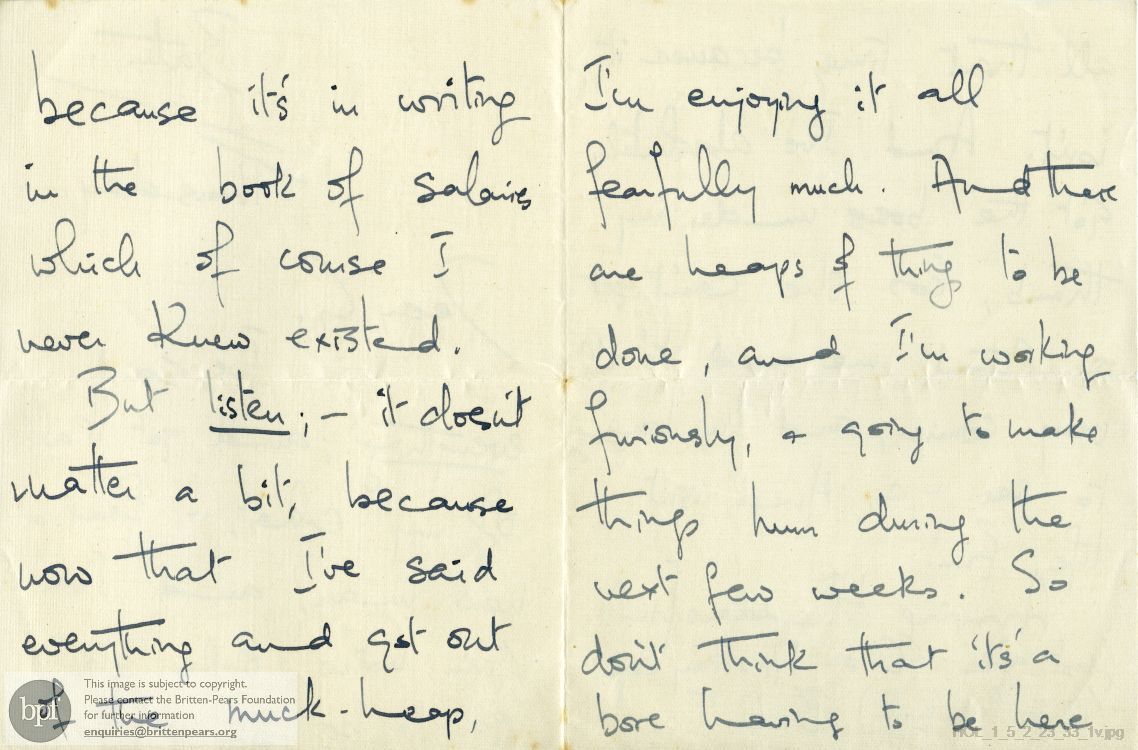 because it's in writing
in the book of salaries
which of course I
never knew existed.
But listen; – it doesn't
matter a bit, because
now that I've said
everything and got out
of the muck-heap,
I'm enjoying it all
fearfully much. And there
are heaps of things to be
done, and I'm working
furiously, & going to make
things hum during the
next few weeks. So
don't think that it's a
bore having to be here
bpf
This image is subject to copyright.
Please contact the Britten-Pears Foundation
for further information
enquiries@brittenpears.org
HOL_1_5_2_23_33_1v.jpg